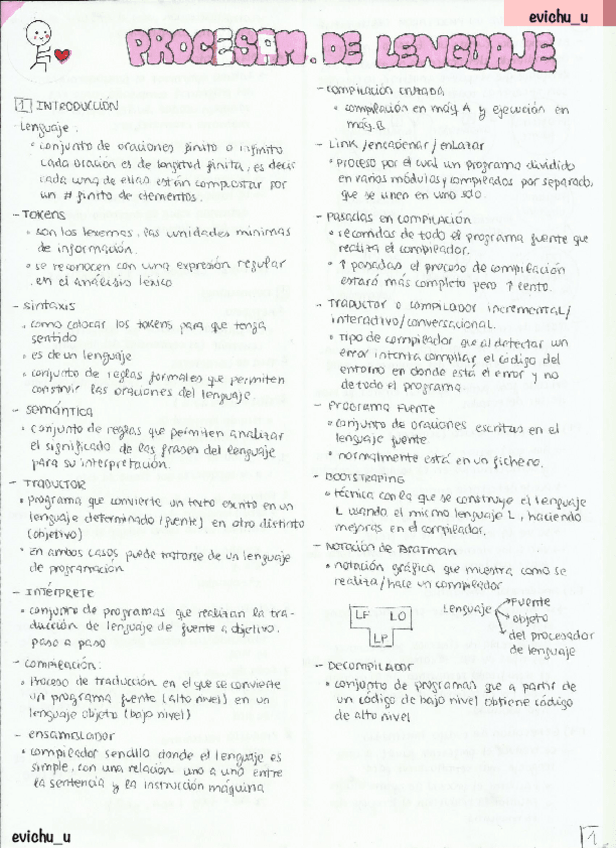 evichu_u
PROCESAM. DE LENGUAJE
1 INTRODUCCIÓN
- Lenguaje:
• conjunto de oraciones finito o infinito
cada oración es de longitud finita, es decir
cada una de ellas están compuestas por
un # finito de elementos.
- TOKENS
• son los lexemas, las unidades mínimas
de información.
• se reconocen con una expresión regular
en el análisis léxico
- sintaxis
• como colocar los tokens para que tenga
sentido
• es de un lenguaje
• conjunto de reglas formales que permiten
construir las oraciones del lenguaje.
- semántica
• conjunto de reglas que permiten analizar
el significado de las frases del lenguaje
para su interpretación.
- TRADUCTOR
• programa que convierte un texto escrito en un
lenguaje determinado (fuente) en otro distinto
(objetivo)
• en ambos casos puede tratarse de un lenguaje
de programación
- INTÉRPRETE
• conjunto de programas que realizan la tra-
ducción de lenguaje de fuente a objetivo.
paso a paso
- compilación:
• Proceso de traducción en el que se convierte
un programa fuente (alto nivel) en un
lenguaje objeto (bajo nivel)
- ensamblador
• compilador sencillo donde el lenguaje es
simple, con una relación uno a uno entre
la sentencia y la instrucción máquina
- compilación cruzada
• compilación en máq. A y ejecución en
máq. B
- Link / encadenar / enlazar
• proceso por el cual un programa dividido
en varios módulos y compilados por separado,
que se unen en uno solo.
- Pasadas en compilación
• recorridos de todo el programa fuente que
realiza el compilador.
• ↑ pasadas el proceso de compilación
estará más completo pero ↑ lento.
- TRADUCTOR O COMPILADOR incremental/
interactivo/conversacional.
• Tipo de compilador que al detectar un
error intenta compilar el código del
entorno en donde está el error y no
de todo el programa.
- Programa Fuente
• conjunto de oraciones escritas en el
lenguaje fuente
• normalmente está en un fichero.
- BOOTSTRAPING
• técnica con la que se construye el lenguaje
L usando el mismo lenguaje L, haciendo
mejoras en el compilador.
- Notación de Bratman
• notación gráfica que muestra como se
realiza/hace un compilador
LF LO
LP
Lenguaje
Fuente
objeto
del procesador
de lenguaje
- Decompilador
• conjunto de programas que a partir de
un código de bajo nivel obtiene código
de alto nivel
evichu_u
1